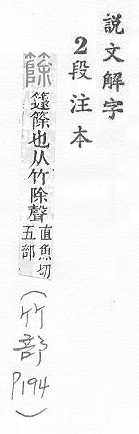 説文解字
2段注本
篨 籧篨也从竹除聲 直魚切
五部
(竹部
P194)